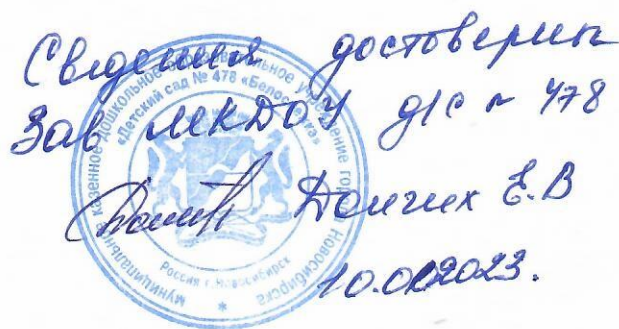 Сведения достоверны
Зав МКДОУ д/с № 478
Долгих Е.В
муниципальное казенное дошкольное образовательное учреждение города Новосибирска
«Детский сад № 478 «Белоснежка»
Россия г. Новосибирск